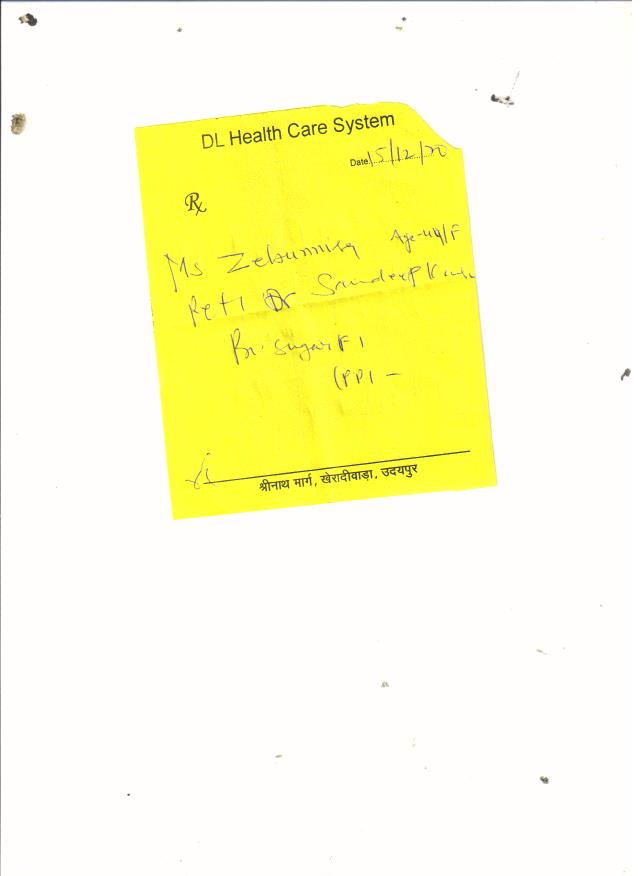 DL Health Care System
Date 15/12/20
Rx
Ms Zebunnisa Age-44/F
Ref / Dr Sandeep
Bl. Sugar F /
(PP) -
श्रीनाथ मार्ग, खेरादीवाड़ा, उदयपुर